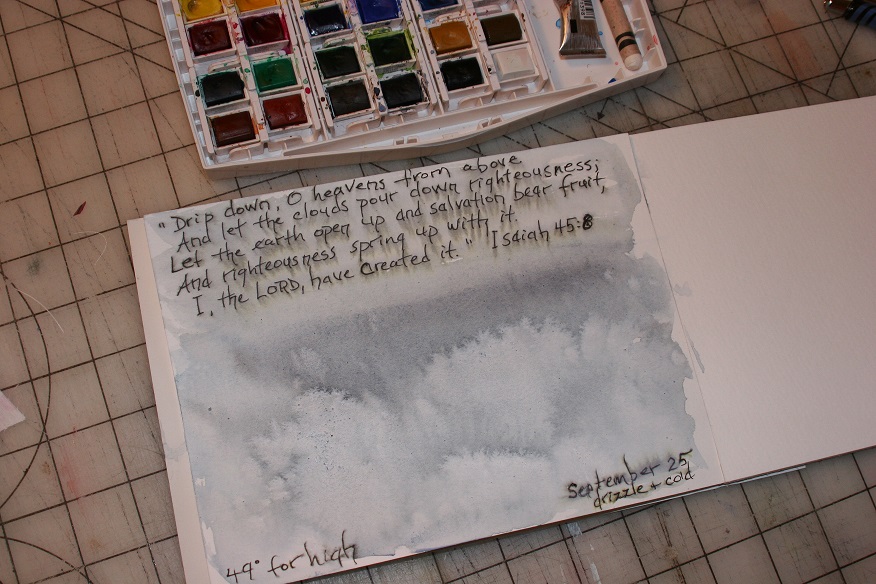 "Drip down, O heavens from above
And let the clouds pour down righteousness;
Let the earth open up and salvation bear fruit,
And righteousness spring up with it.
I, the LORD, have created it." Isaiah 45:8
September 25
drizzle + cold
49° for high